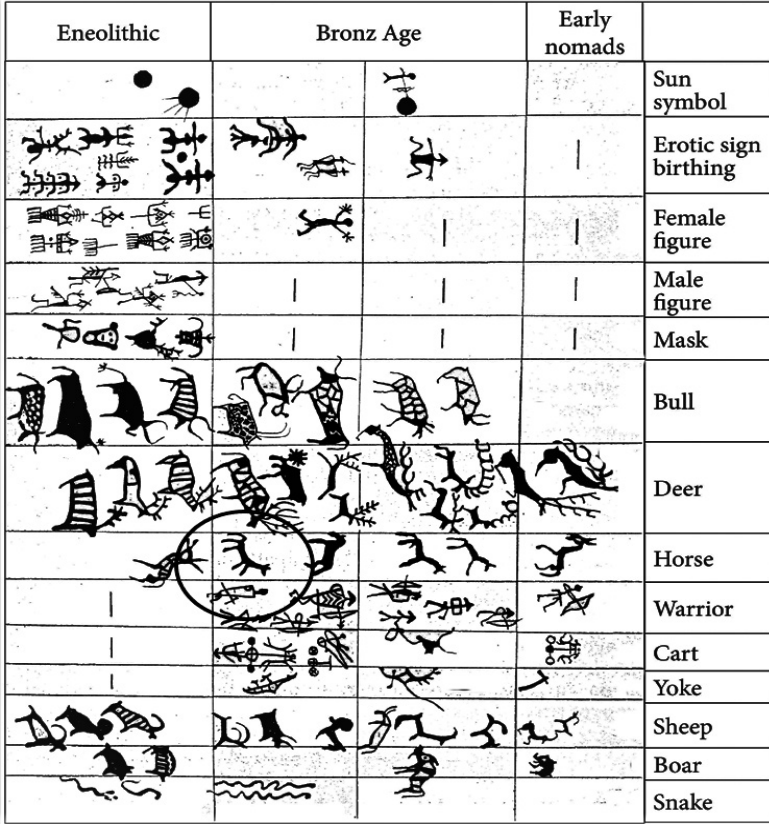 Eneolithic
Bronz Age
Early
nomads
Sun
symbol
Erotic sign
birthing
Female
figure
Male
figure
Mask
Bull
Deer
Horse
Warrior
Cart
Yoke
Sheep
Boar
Snake